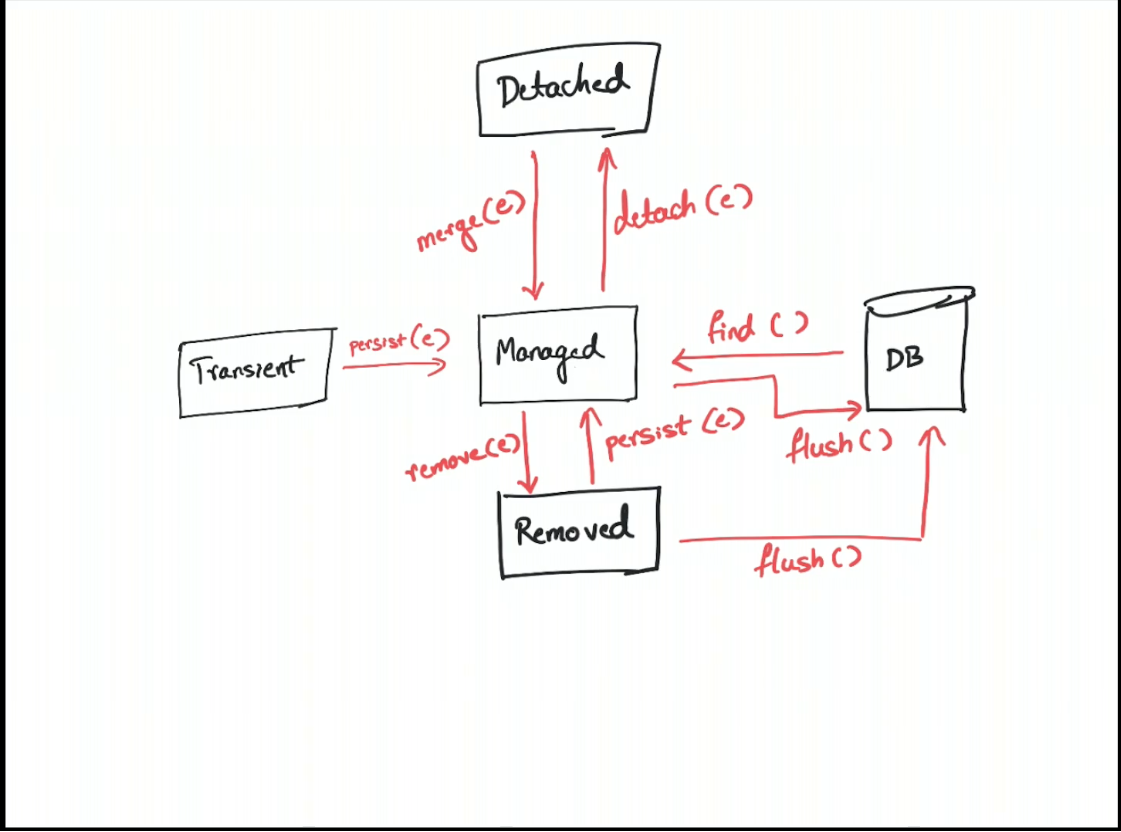 Detached
merge(e)
detach (e)
Transient
persist(e)
Managed
find ( )
DB
remove(e)
persist (e)
flush( )
Removed
flush( )